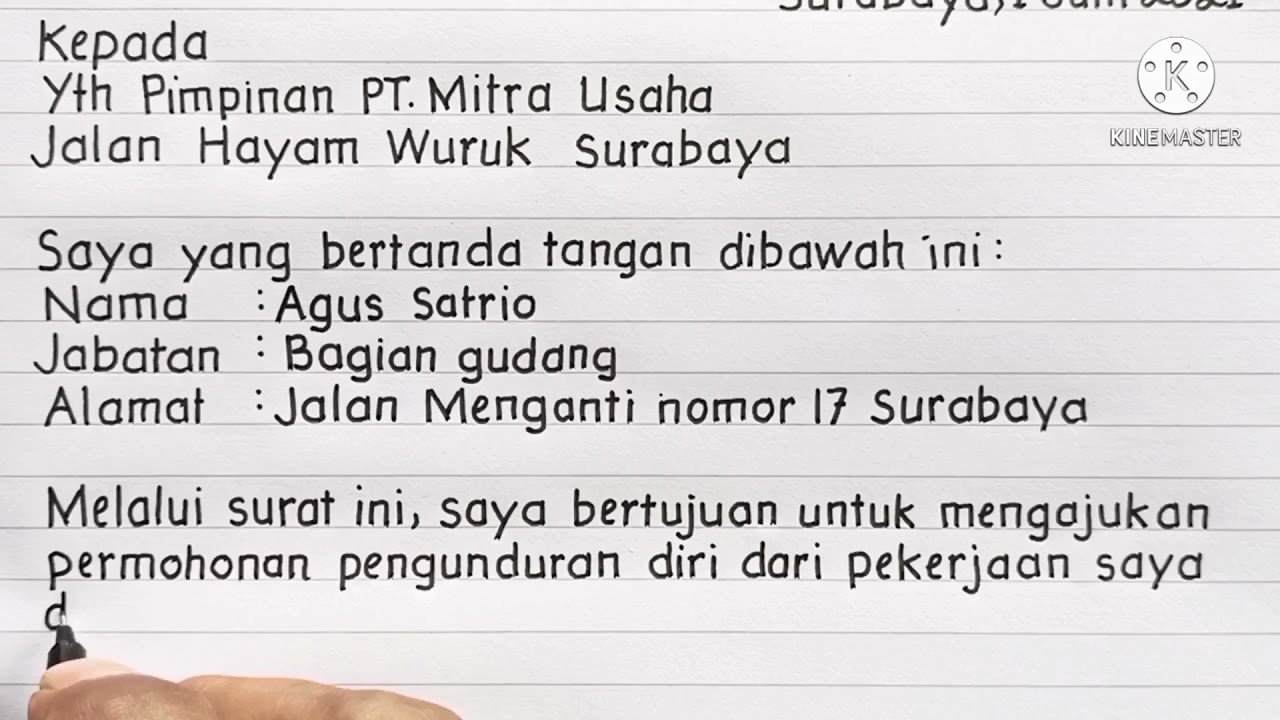 Kepada
Yth Pimpinan PT. Mitra Usaha
Jalan Hayam Wuruk Surabaya
KINEMASTER
Saya yang bertanda tangan dibawah ini :
Nama : Agus Satrio
Jabatan : Bagian gudang
Alamat : Jalan Menganti nomor 17 Surabaya
Melalui surat ini, saya bertujuan untuk mengajukan
permohonan pengunduran diri dari pekerjaan saya
d